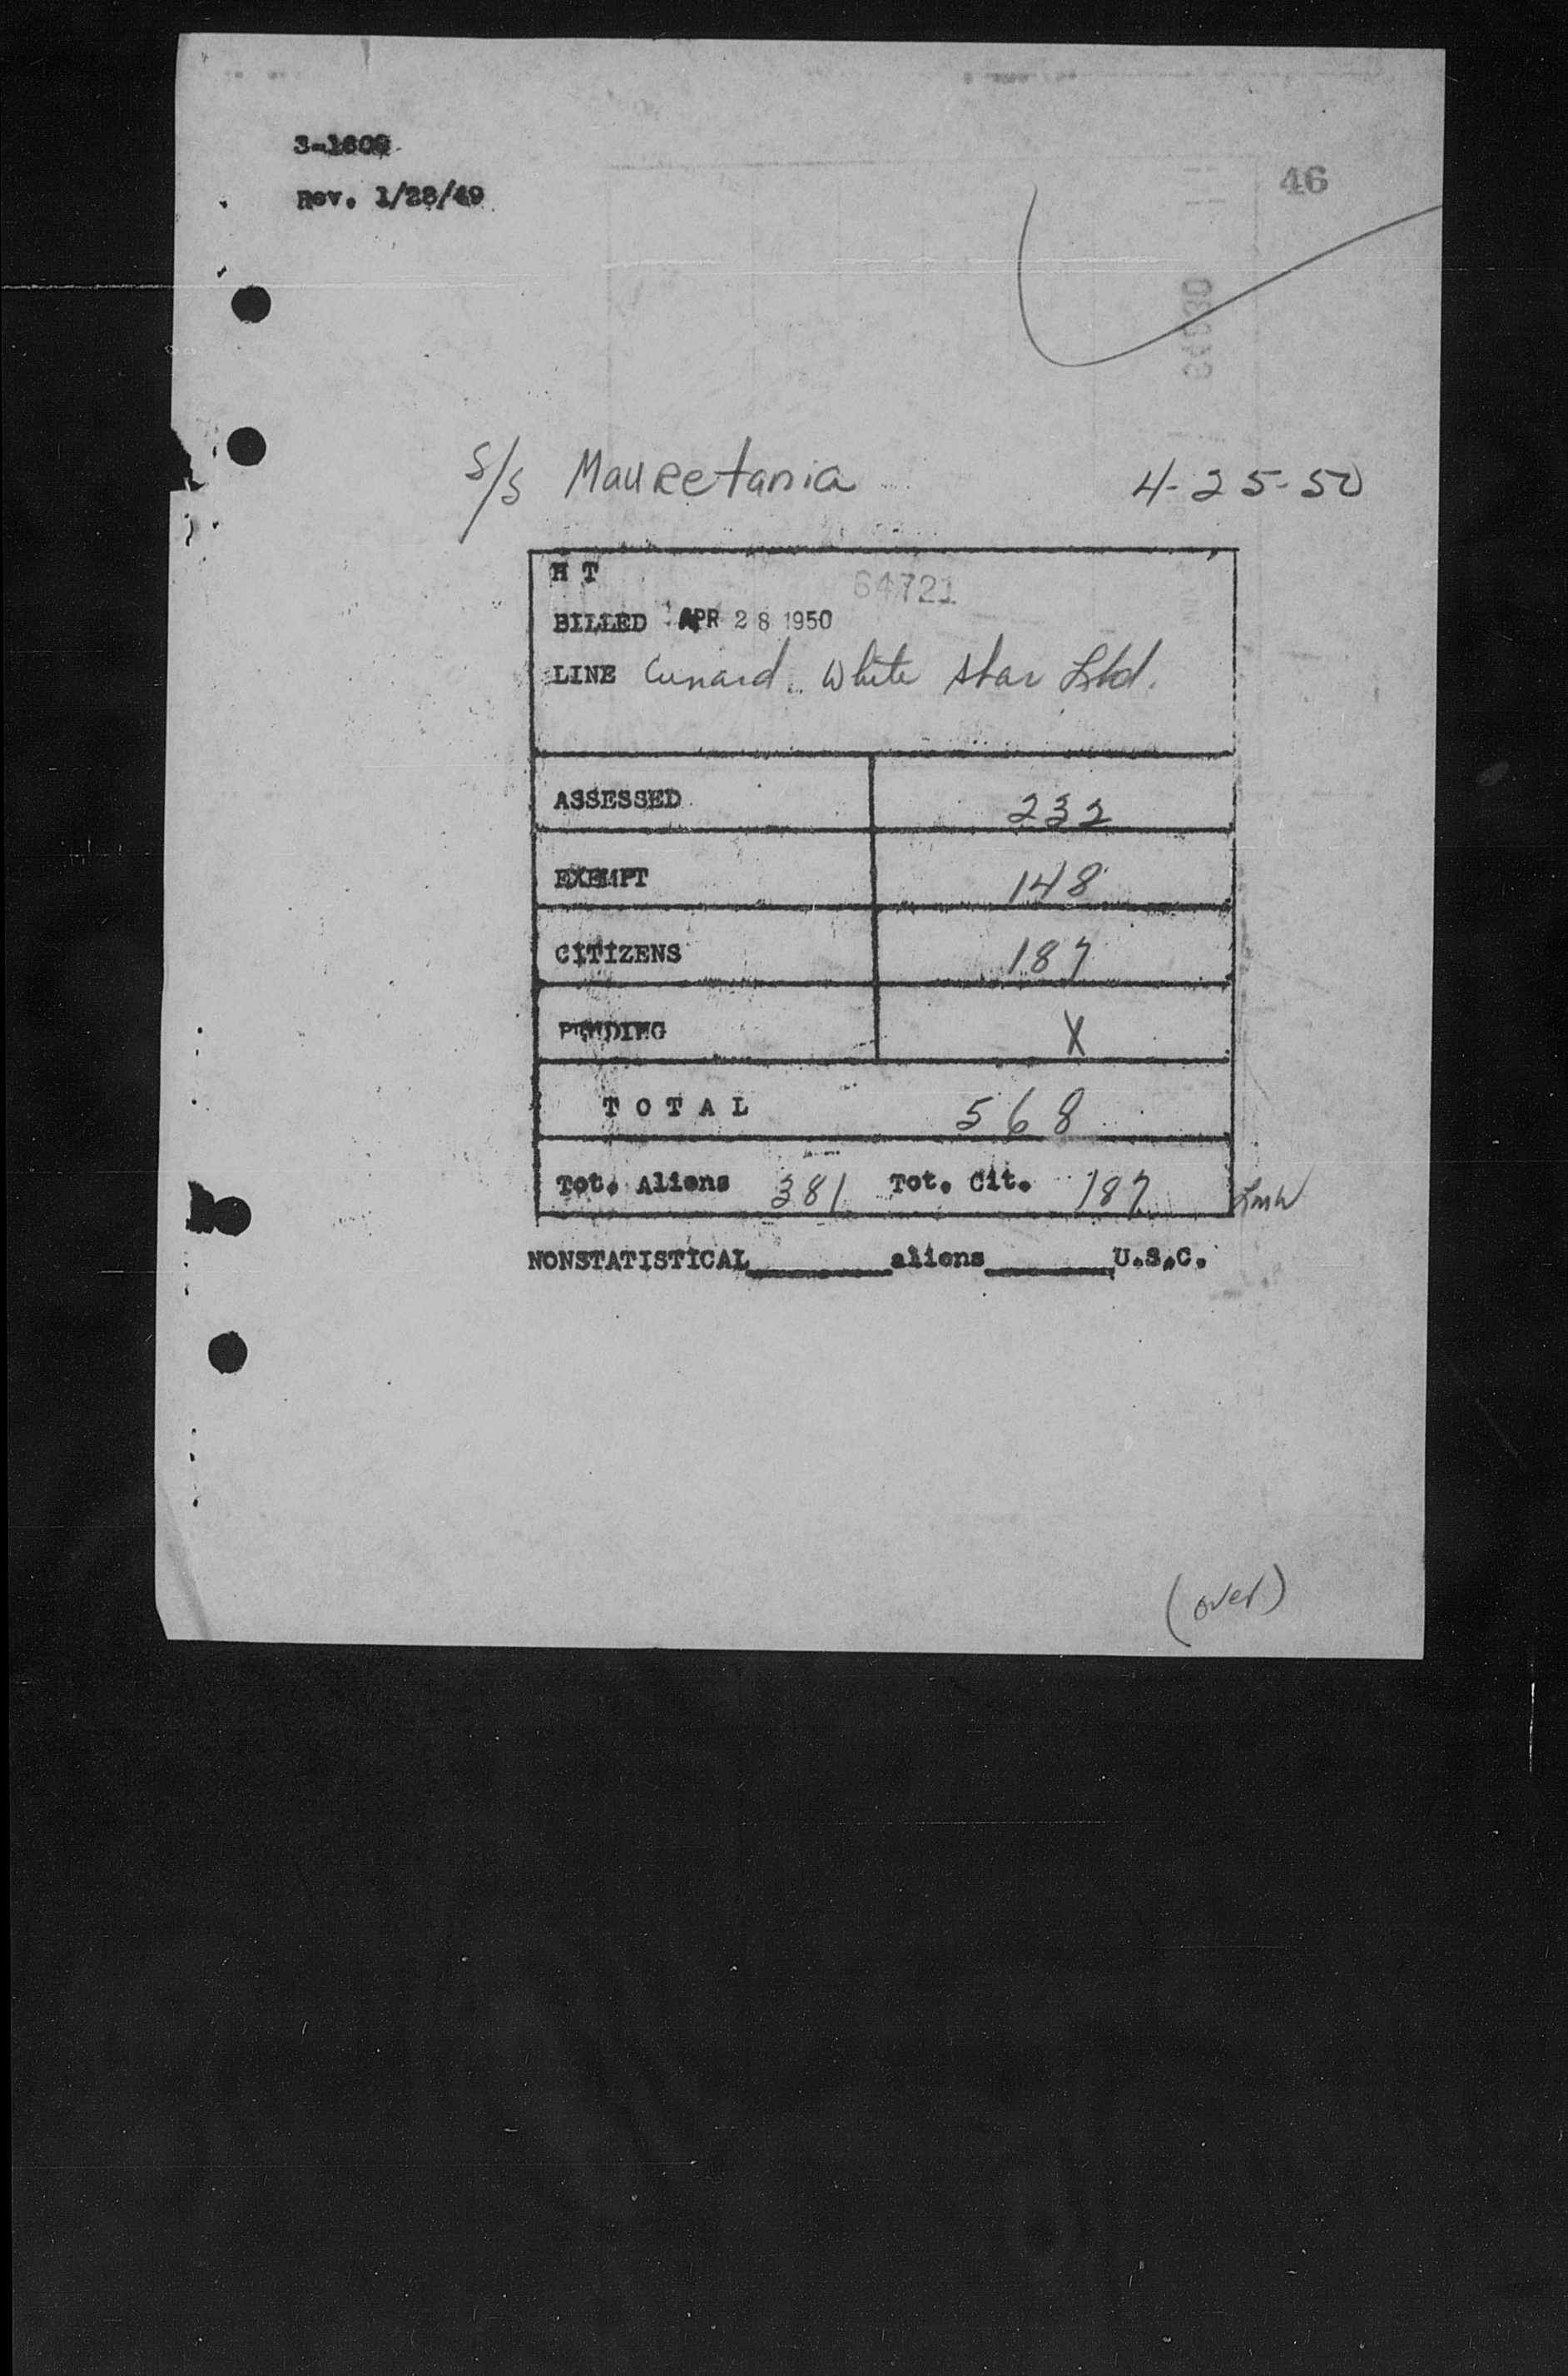 3-1609
Rev. 1/28/49
46
S/S Mauretania 4-25-50
H T 64721
BILLED APR 28 1950
LINE Cunard White Star Ltd.
ASSESSED 232
EXEMPT 148
CITIZENS 187
PENDING X
TOTAL 568
Tot. Aliens 381 Tot. Cit. 187
NONSTATISTICAL aliens U.S.C.
(over)